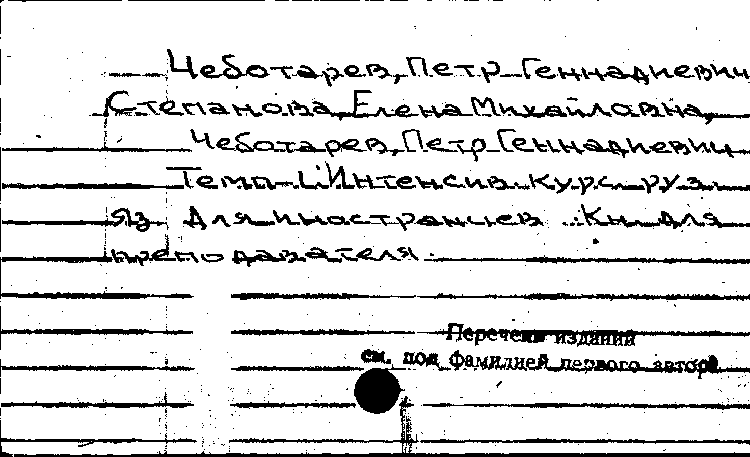 Чеботарев, Петр Геннадиевич
Степанова, Елена Михайловна,
Чеботарев, Петр Геннадиевич
Темп-1. Интенсив. курс рус.
яз для иностранцев .. Кн. для
преподавателя.
Перечень изданий
см. под фамилией первого автора